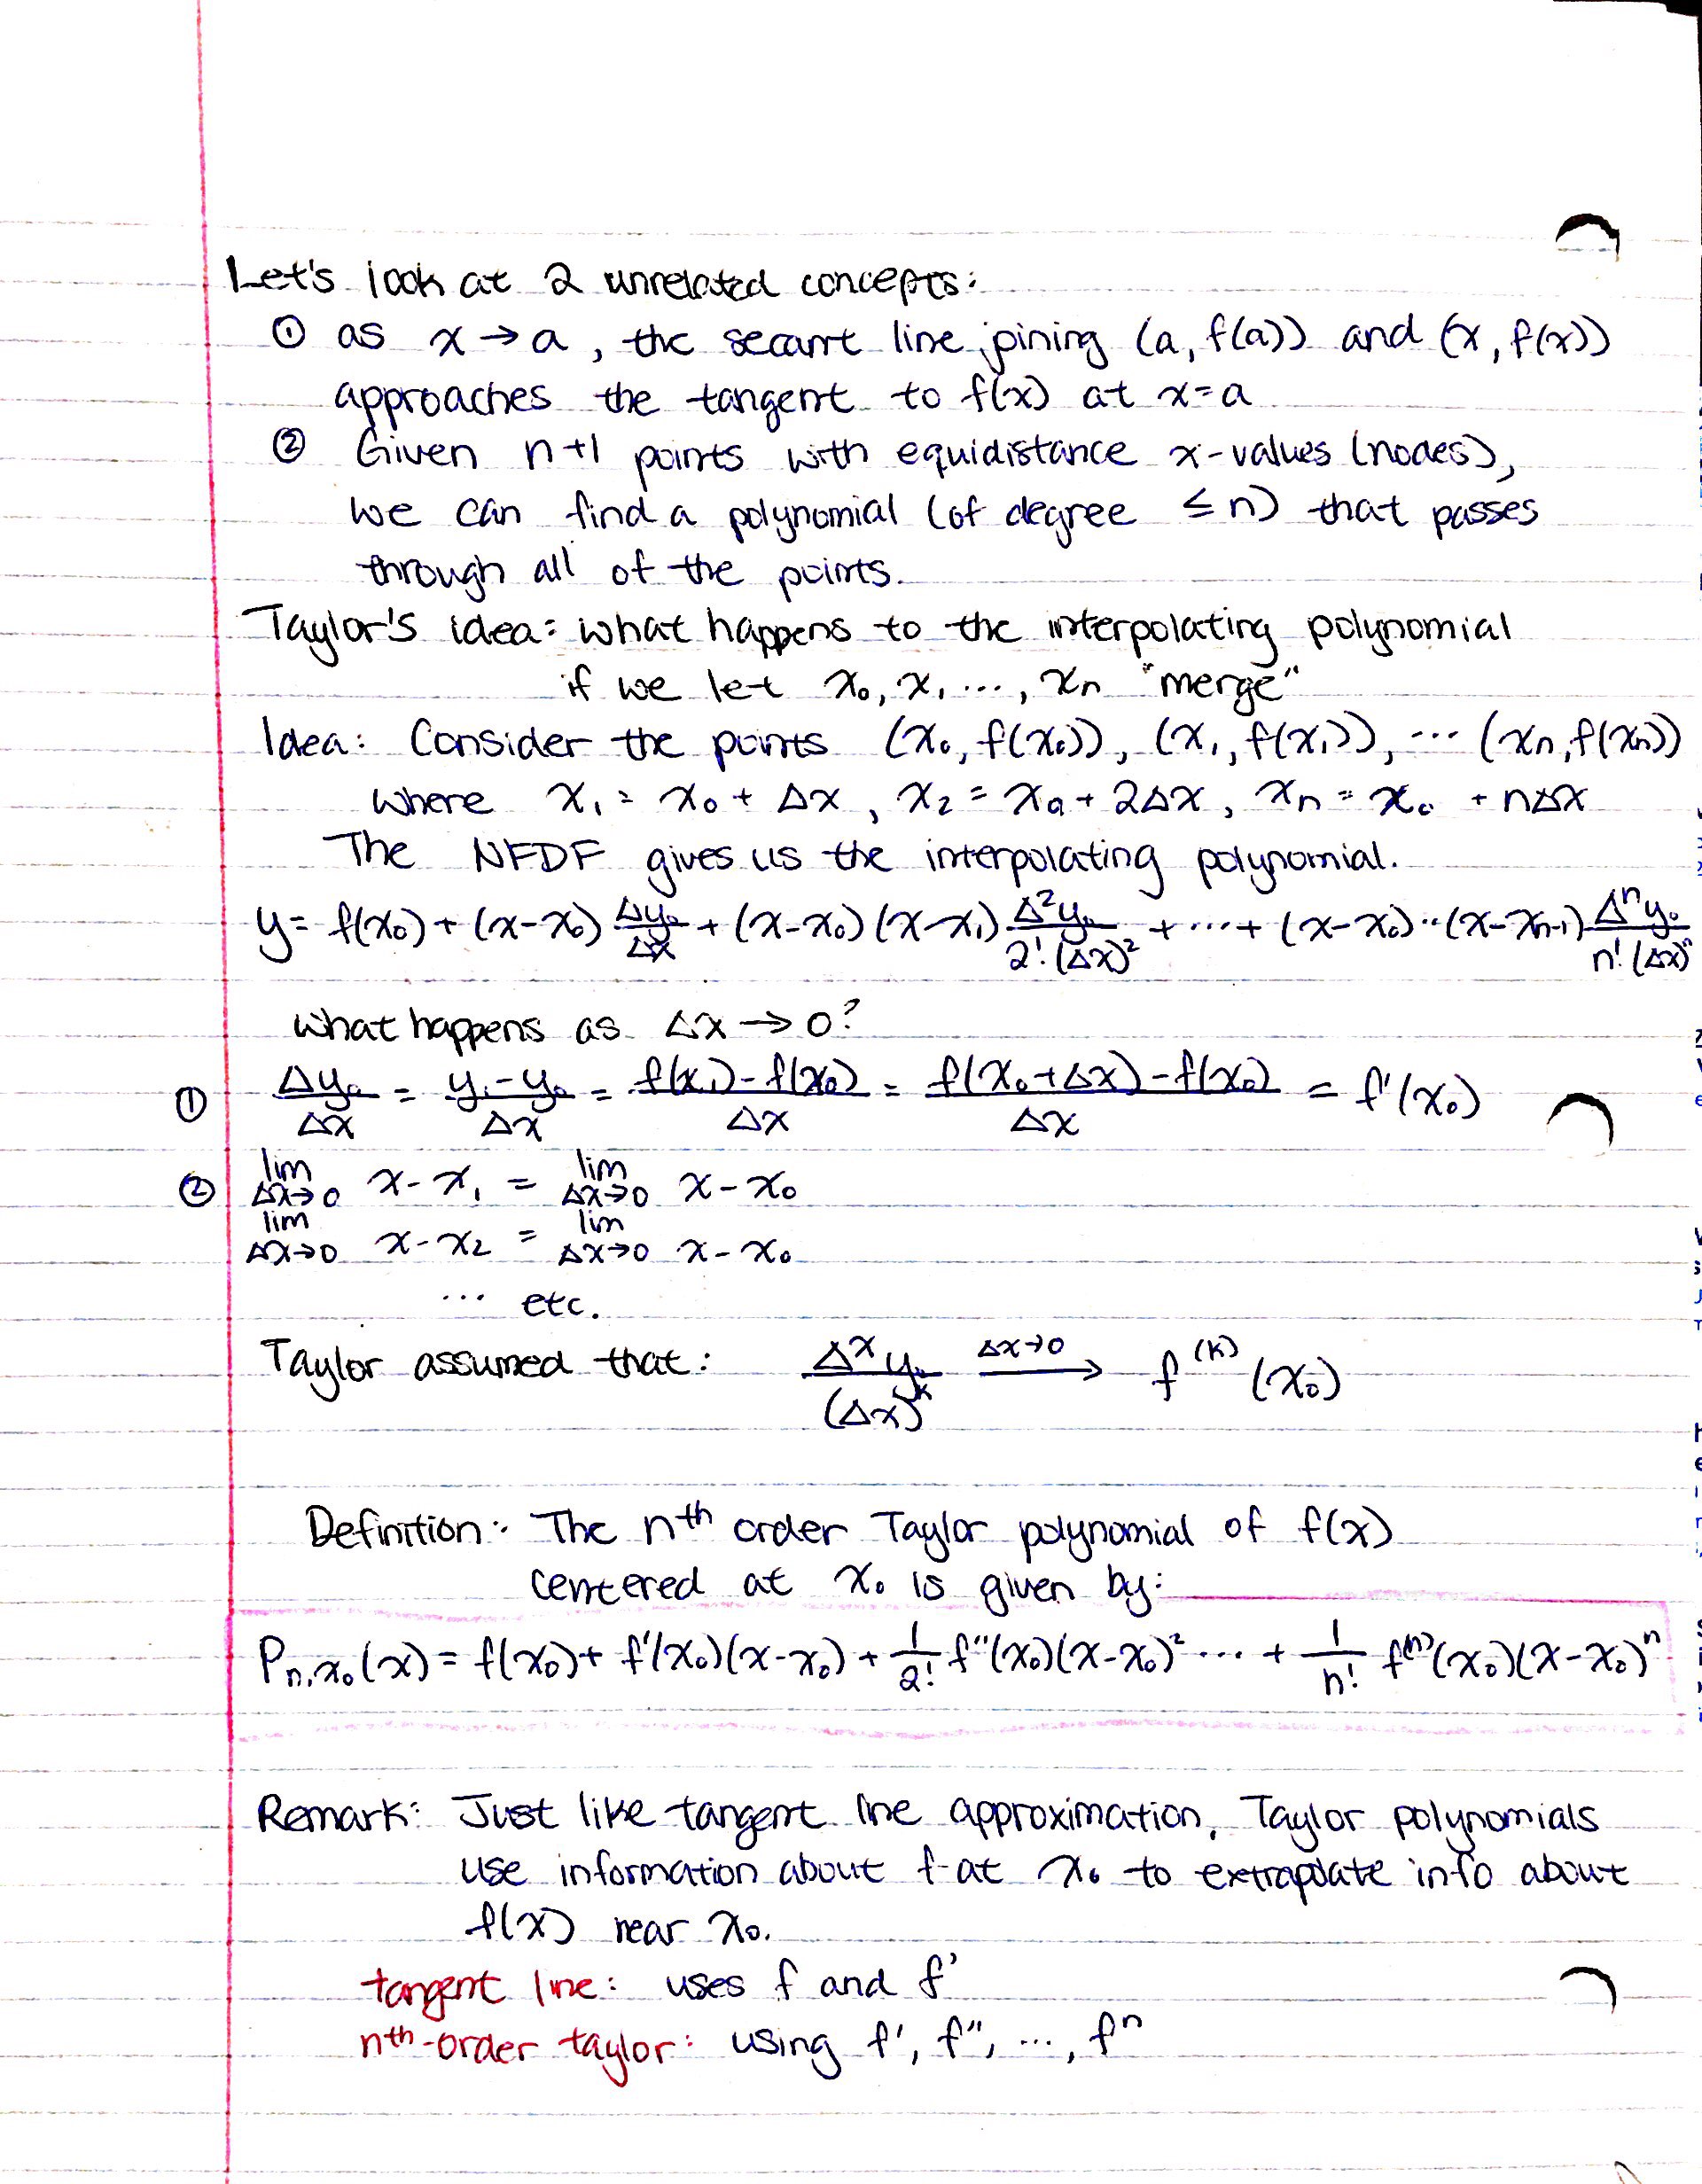 Let's look at 2 unrelated concepts:
① as x → a, the secant line joining (a, f(a)) and (x, f(x))
approaches the tangent to f(x) at x=a
② Given n+1 points with equidistance x-values (nodes),
we can find a polynomial (of degree ≤ n) that passes
through all of the points.
Taylor's idea: what happens to the interpolating polynomial
if we let x₀, x₁ ..., xₙ "merge"
Idea: Consider the points (x₀, f(x₀)), (x₁, f(x₁)), ... (xₙ, f(xₙ))
where x₁ = x₀ + Δx, x₂ = x₀ + 2Δx, xₙ = x₀ + nΔx
The NFDF gives us the interpolating polynomial.
y = f(x₀) + (x-x₀) Δy₀/Δx + (x-x₀)(x-x₁) Δ²y₀/2!(Δx)² + ... + (x-x₀)..(x-xₙ₋₁) Δⁿy₀/n!(Δx)ⁿ
what happens as Δx → 0?
① Δy₀/Δx = y₁-y₀/Δx = f(x₁)-f(x₀)/Δx = f(x₀+Δx)-f(x₀)/Δx = f'(x₀)
② lim Δx→0 x-x₁ = lim Δx→0 x-x₀
lim Δx→0 x-x₂ = lim Δx→0 x-x₀
... etc.
Taylor assumed that: Δˣy₀/(Δx)ᵏ Δx→0 → f⁽ᵏ⁾(x₀)
Definition: The nth order Taylor polynomial of f(x)
centered at x₀ is given by:
Pₙ,ₓ₀(x) = f(x₀) + f'(x₀)(x-x₀) + 1/2! f''(x₀)(x-x₀)² ... + 1/n! f⁽ⁿ⁾(x₀)(x-x₀)ⁿ
Remark: Just like tangent line approximation, Taylor polynomials
use information about f at x₀ to extrapolate info about
f(x) near x₀.
tangent line: uses f and f'
nth-order taylor: using f', f'', ..., fⁿ